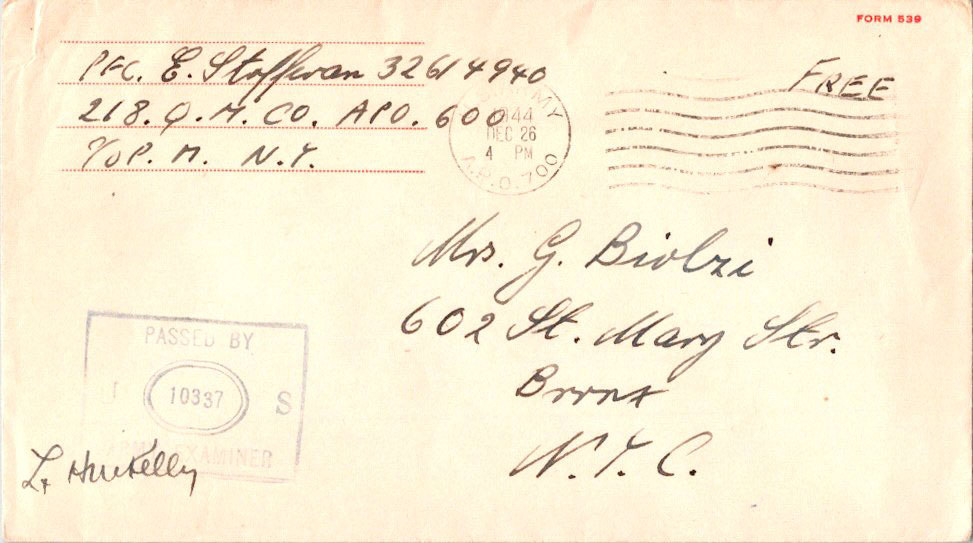 FORM 539
PFC. E. Stofferan 32614940
FREE
218. Q. M. CO. APO. 600
℅ P. M. N.Y.
ARMY
1944
DEC 26
4 PM
A.P.O. 700
Mrs. G. Biolzi
602 St. Mary Str.
Bronx
N. Y. C.
PASSED BY
U 10337 S
ARMY EXAMINER